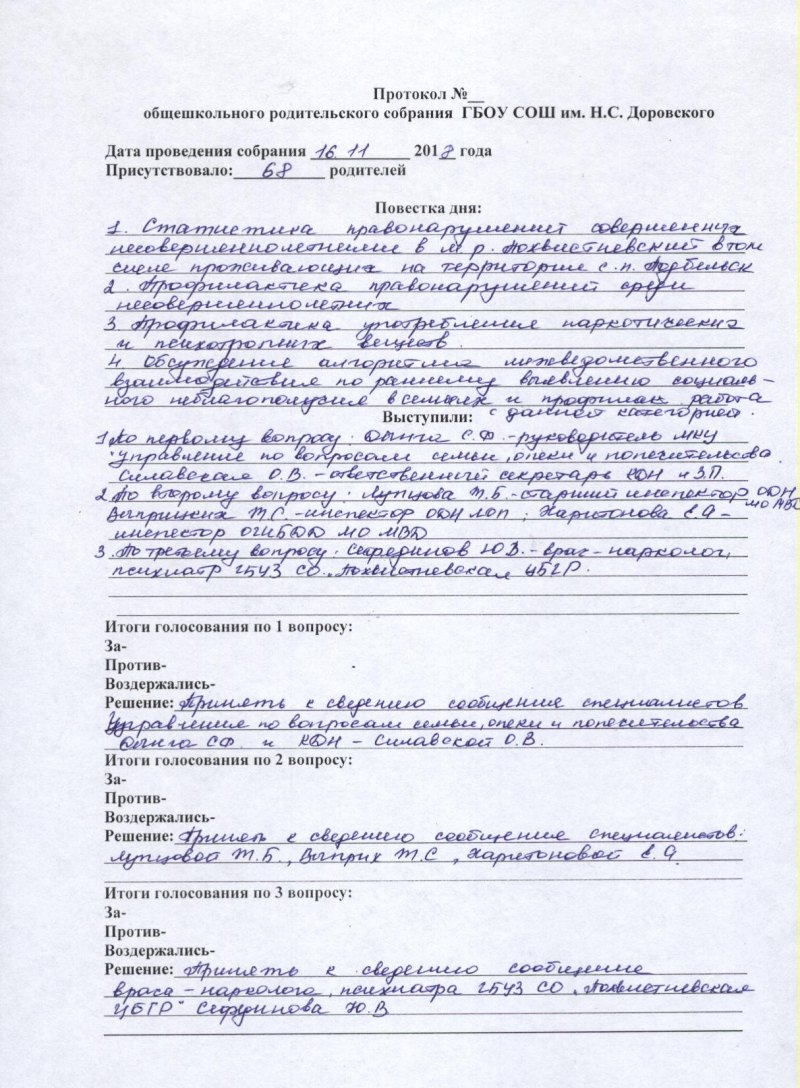 Протокол №__
общешкольного родительского собрания ГБОУ СОШ им. Н.С. Доровского
Дата проведения собрания 16.11 2018 года
Присутствовало: 68 родителей
Повестка дня:
1. Статистика правонарушений совершенных
несовершеннолетними в м.р. Похвистневский в том
числе проживающих на территории с.п. Подбельск
2. Профилактика правонарушений среди
несовершеннолетних
3. Профилактика употребления наркотических
и психотропных веществ.
4. Обсуждение алгоритма межведомственного
взаимодействия по раннему выявлению социаль-
ного неблагополучия в семьях и профилак. работа
Выступили: с данной категорией.
1. По первому вопросу: С.Ф. - руководитель МКУ
"Управление по вопросам семьи, опеки и попечительства
Силавская О.В. - ответственный секретарь КДН и ЗП.
2. По второму вопросу: Лупцова Т.Б. - старший инспектор ОДН
МО МВД
Т.С. - инспектор ОДН ЛОП; Харитонова Е.А -
инспектор ОГИБДД МО МВД
3. По третьему вопросу: Ю.В. - врач-нарколог,
психиатр ГБУЗ СО "Похвистневская ЦБГР.
Итоги голосования по 1 вопросу:
За-
Против-
Воздержались-
Решение: Принять к сведению сообщения специалистов
Управления по вопросам семьи, опеки и попечительства
С.Ф. и КДН - Силавской О.В.
Итоги голосования по 2 вопросу:
За-
Против-
Воздержались-
Решение: Принять к сведению сообщение специалистов:
Лупцовой Т.Б., Т.С, Харитоновой Е.А.
Итоги голосования по 3 вопросу:
За-
Против-
Воздержались-
Решение: Принять к сведению сообщение
врача-нарколога, психиатра ГБУЗ СО "Похвистневская
ЦБГР" Ю.В